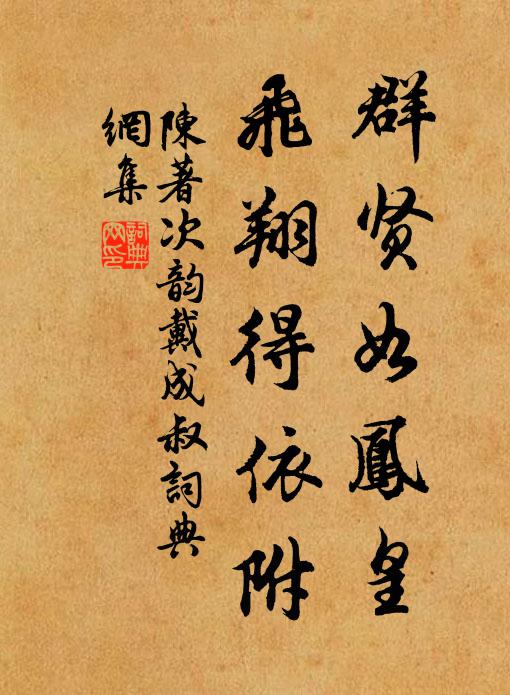 群贤如鳳皇
飛翔得依附
陳著次韵戴成叔詞典
網集
詞典
网印